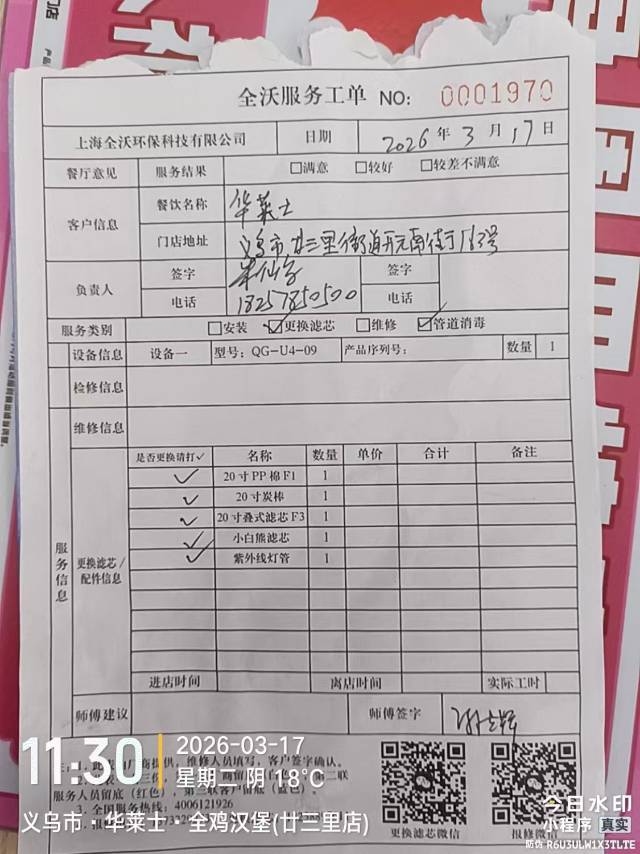 全沃服务工单 NO: 0001970
上海全沃环保科技有限公司 日期 2026年3月17日
餐厅意见 服务结果 □满意 □较好 □较差不满意
客户信息 餐饮名称 华莱士
门店地址 义乌市廿三里街道开元南街163号
负责人 签字 签字
电话 18257850500 电话
服务类别 □安装 ☑更换滤芯 □维修 ☑管道消毒
设备信息 设备一 型号: QG-U4-09 产品序列号: 数量 1
检修信息
服务信息
维修信息
更换滤芯/配件信息
是否更换请打✓ 名称 数量 单价 合计 备注
✓ 20寸PP棉F1 1
✓ 20寸炭棒 1
✓ 20寸叠式滤芯F3 1
✓ 小白熊滤芯 1
✓ 紫外线灯管 1
进店时间 离店时间 实际工时
师傅建议 师傅签字
服务人员留底(红色)
3. 全国服务热线: 4006121926
更换滤芯微信 报修微信
11:30
2026-03-17
星期二 阴 18℃
义乌市·华莱士·全鸡汉堡(廿三里店)
今日水印
小程序 真实
防伪 R6U3ULW1X3TLTE